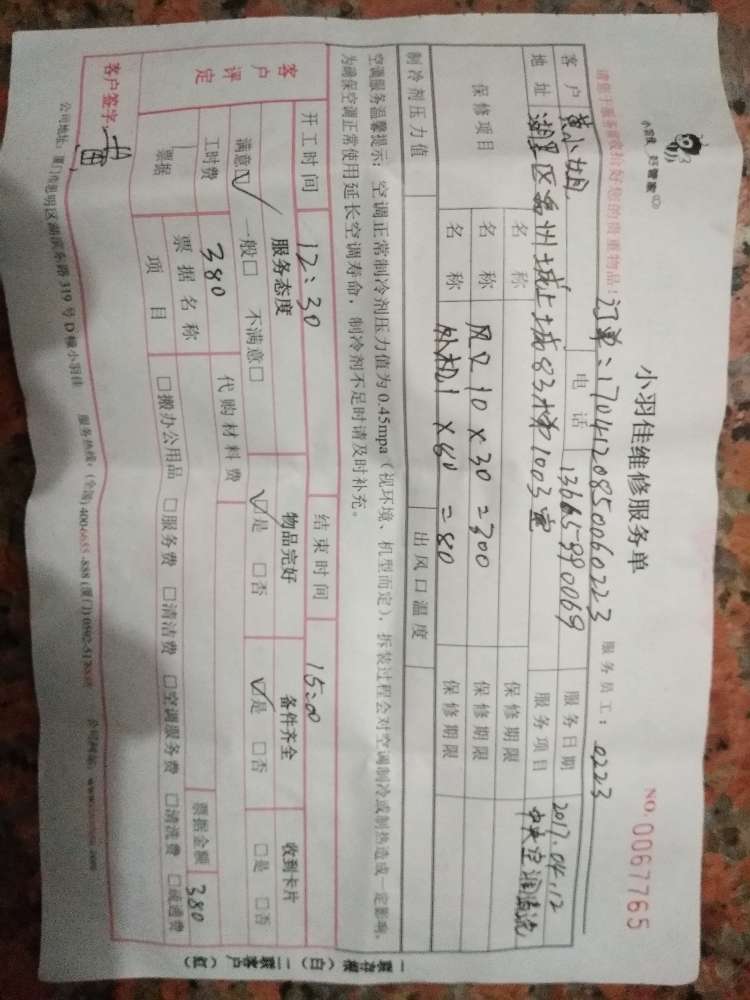 小羽佳维修服务单
NO.0067765
小羽佳 好管家
请您于服务前收拾好您的贵重物品!
订单:1704120850060223
服务员工: 0223
客户 黄小姐 电话 13665990069 服务日期 2017.04.12
地址 湖里区 城上城83梯1003室 服务项目 中央空调清洗
保修项目 名称 保修期限
名称 风口10×30=300 保修期限
名称 外机1×80=80 保修期限
制冷剂压力值 出风口温度
空调服务温馨提示:空调正常制冷剂压力值为0.45mpa(视环境、机型而定),拆装过程会对空调制冷或制热造成一定影响,
为确保空调正常使用延长空调寿命,制冷剂不足时请及时补充。
开工时间 12:30 结束时间 15:00
客户评定 服务态度 物品完好 备件齐全 收到卡片
满意☑ 一般□ 不满意□ ☑是 □否 ☑是 □否 □是 □否
工时费 380 代购材料费
票据 票据名称 票据金额 380
项目 □搬办公用品 □服务费 □清洁费 □空调服务费 □清洗费 □疏通费
客户签字:
公司地址:厦门市思明区湖滨东路319号D幢小羽佳 服务热线:(全国)400-6655-888(厦门)0592-
一联存根(白) 二联客户(红)